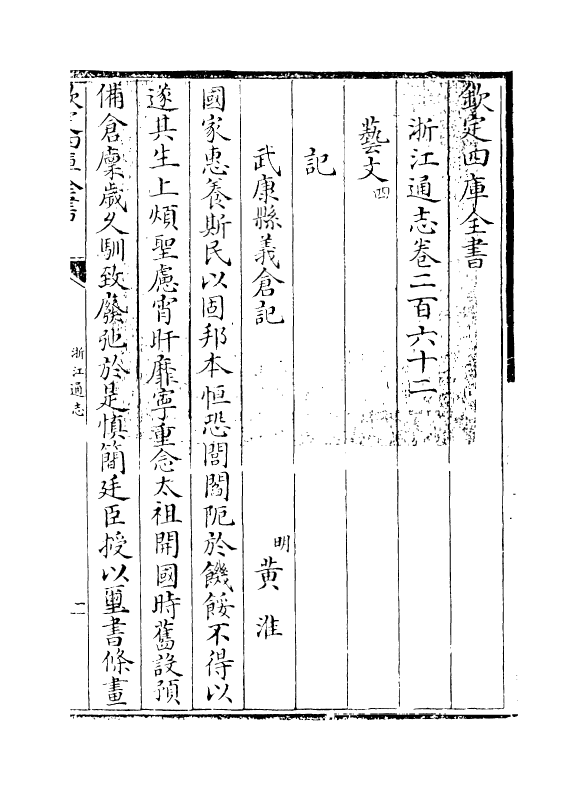 欽定四庫全書
浙江通志卷二百六十二
藝文四
記
武康縣義倉記 明黃淮
國家惠養斯民以固邦本恒恐閭閻阨於饑餒不得以
遂其生上煩聖慮宵旰靡寧重念太祖開國時舊設預
備倉廩歲久馴致廢弛於是慎簡廷臣授以璽書條畫
欽定四庫全書 浙江通志